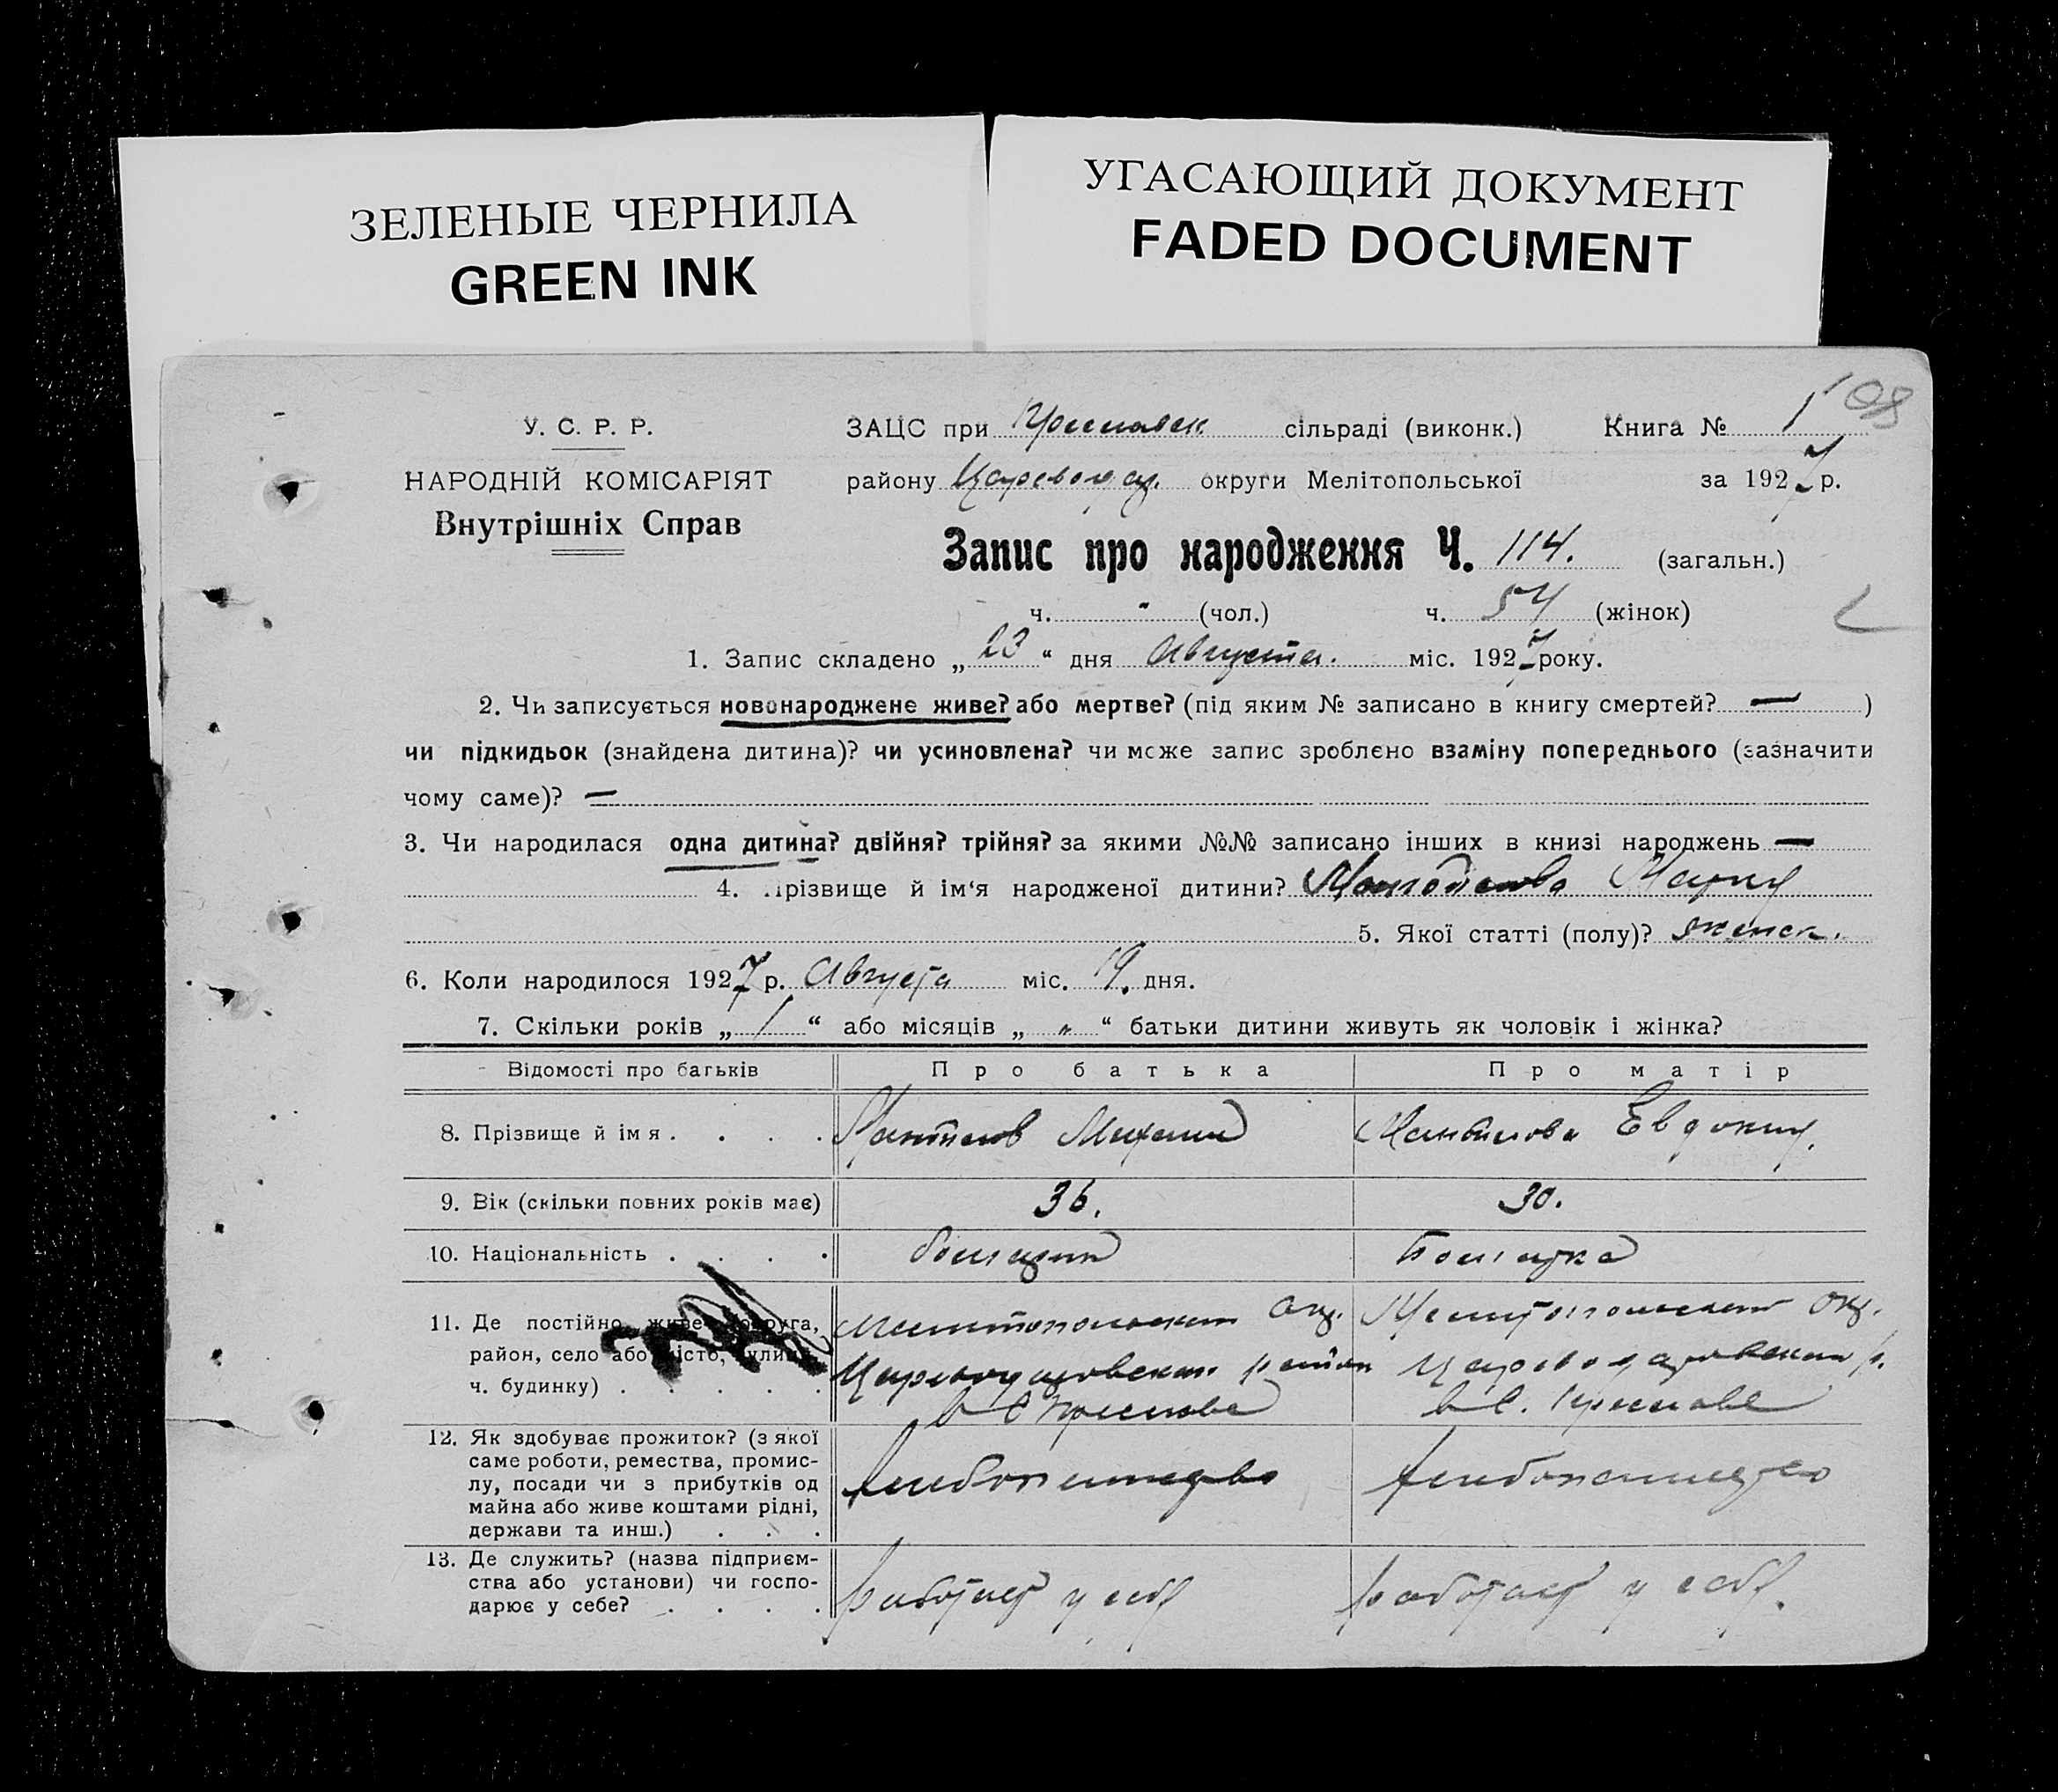 ЗЕЛЕНЫЕ ЧЕРНИЛА
GREEN INK
УГАСАЮЩИЙ ДОКУМЕНТ
FADED DOCUMENT
108
У. С. Р. Р.
НАРОДНІЙ КОМІСАРІЯТ
Внутрішніх Справ
ЗАЦС при сільраді (виконк.) Книга № 1
району округи Мелітопольської за 1927 р.
Запис про народження Ч. 114. (загальн.)
ч. " (чол.) ч. 54 (жінок)
1. Запис складено „ 23 “ дня Августа. міс. 1927 року.
2. Чи записується новонароджене живе? або мертве? (під яким № записано в книгу смертей? — )
чи підкидьок (знайдена дитина)? чи усиновлена? чи може запис зроблено взаміну попереднього (зазначити
чому саме)? —
3. Чи народилася одна дитина? двійня? трійня? за якими №№ записано інших в книзі народжень —
4. Прізвище й ім‘я народженої дитини? Мария
5. Якої статті (полу)? женск.
6. Коли народилося 1927 р. Августа міс. 19. дня.
7. Скільки років „ 1 “ або місяців „ " “ батьки дитини живуть як чоловік і жінка?
Відомості про батьків Про батька Про матір
8. Прізвище й ім я . . . . Михаил Евдокия.
9. Вік (скільки повних років має) 36. 30.
10. Національність . . . . болгарин Болгарка
11. Де постійно живе округа, Мелитопольский Окр. Мелитопольский Окр.
район, село або місто, улиця, район р.
ч. будинку) . . . . . в с. в с.
12. Як здобуває прожиток? (з якої
саме роботи, ремества, промис-
лу, посади чи з прибутків од хлебопашество хлебопашество
майна або живе коштами рідні,
держави та инш.) . . .
13. Де служить? (назва підприєм-
ства або установи) чи госпо- работает у себя работает у себя.
дарює у себе? . . . .